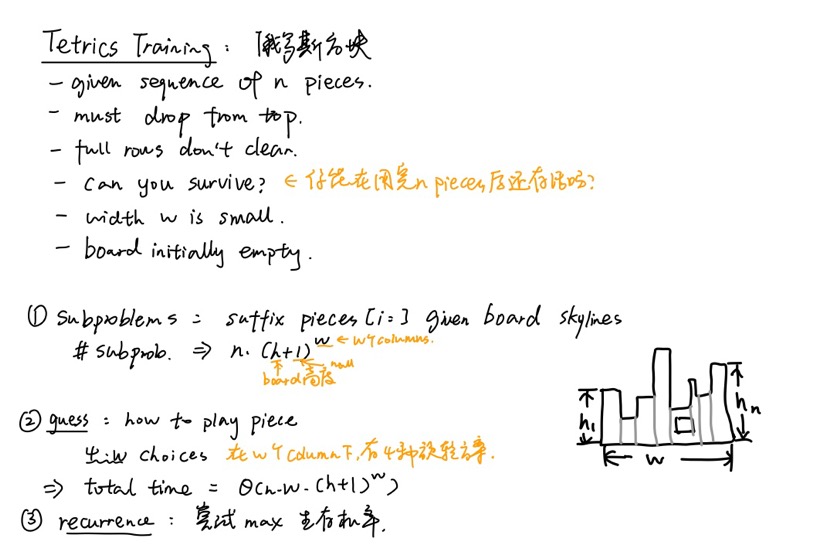 Tetrics Training : 俄罗斯方块
- given sequence of n pieces.
- must drop from top.
- full rows don't clear.
- can you survive? ← 你能在用完n pieces后还存活吗?
- width w is small.
- board initially empty.
① Subproblems = suffix pieces [i:] given board skylines
# subprob. ⇒ n. (h+1)^w ← w个columns.
board高度 null
② guess : how to play piece
choices 在w个column下,有4种旋转方案.
⇒ total time = Θ(n·w·(h+1)^w)
③ recurrence : 尝试max生存机率.
h₁
hₙ
w